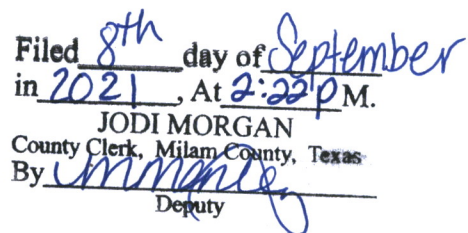 Filed 8th day of September
in 2021, At 2:22 P M.
JODI MORGAN
County Clerk, Milam County, Texas
By
Deputy